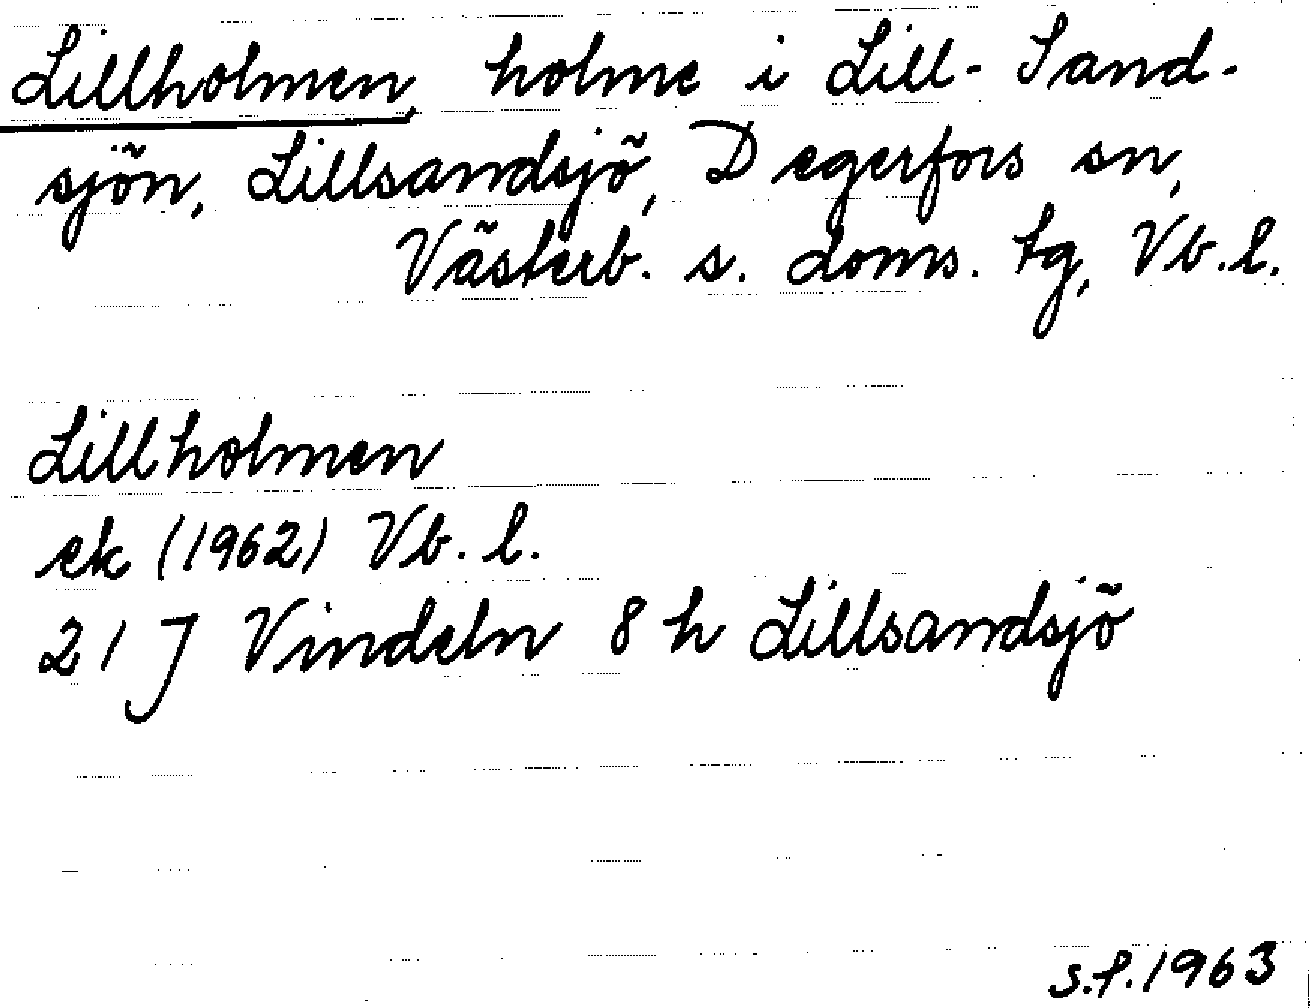 Lillholmen, holme i Lill-Sand-
sjön, Lillsandsjö, Degerfors sn,
Västerb. s. doms. tg, Vb.l.
Lillholmen
ek (1962) Vb.l.
21 J Vindeln 8 h Lillsandsjö
S.P. 1963